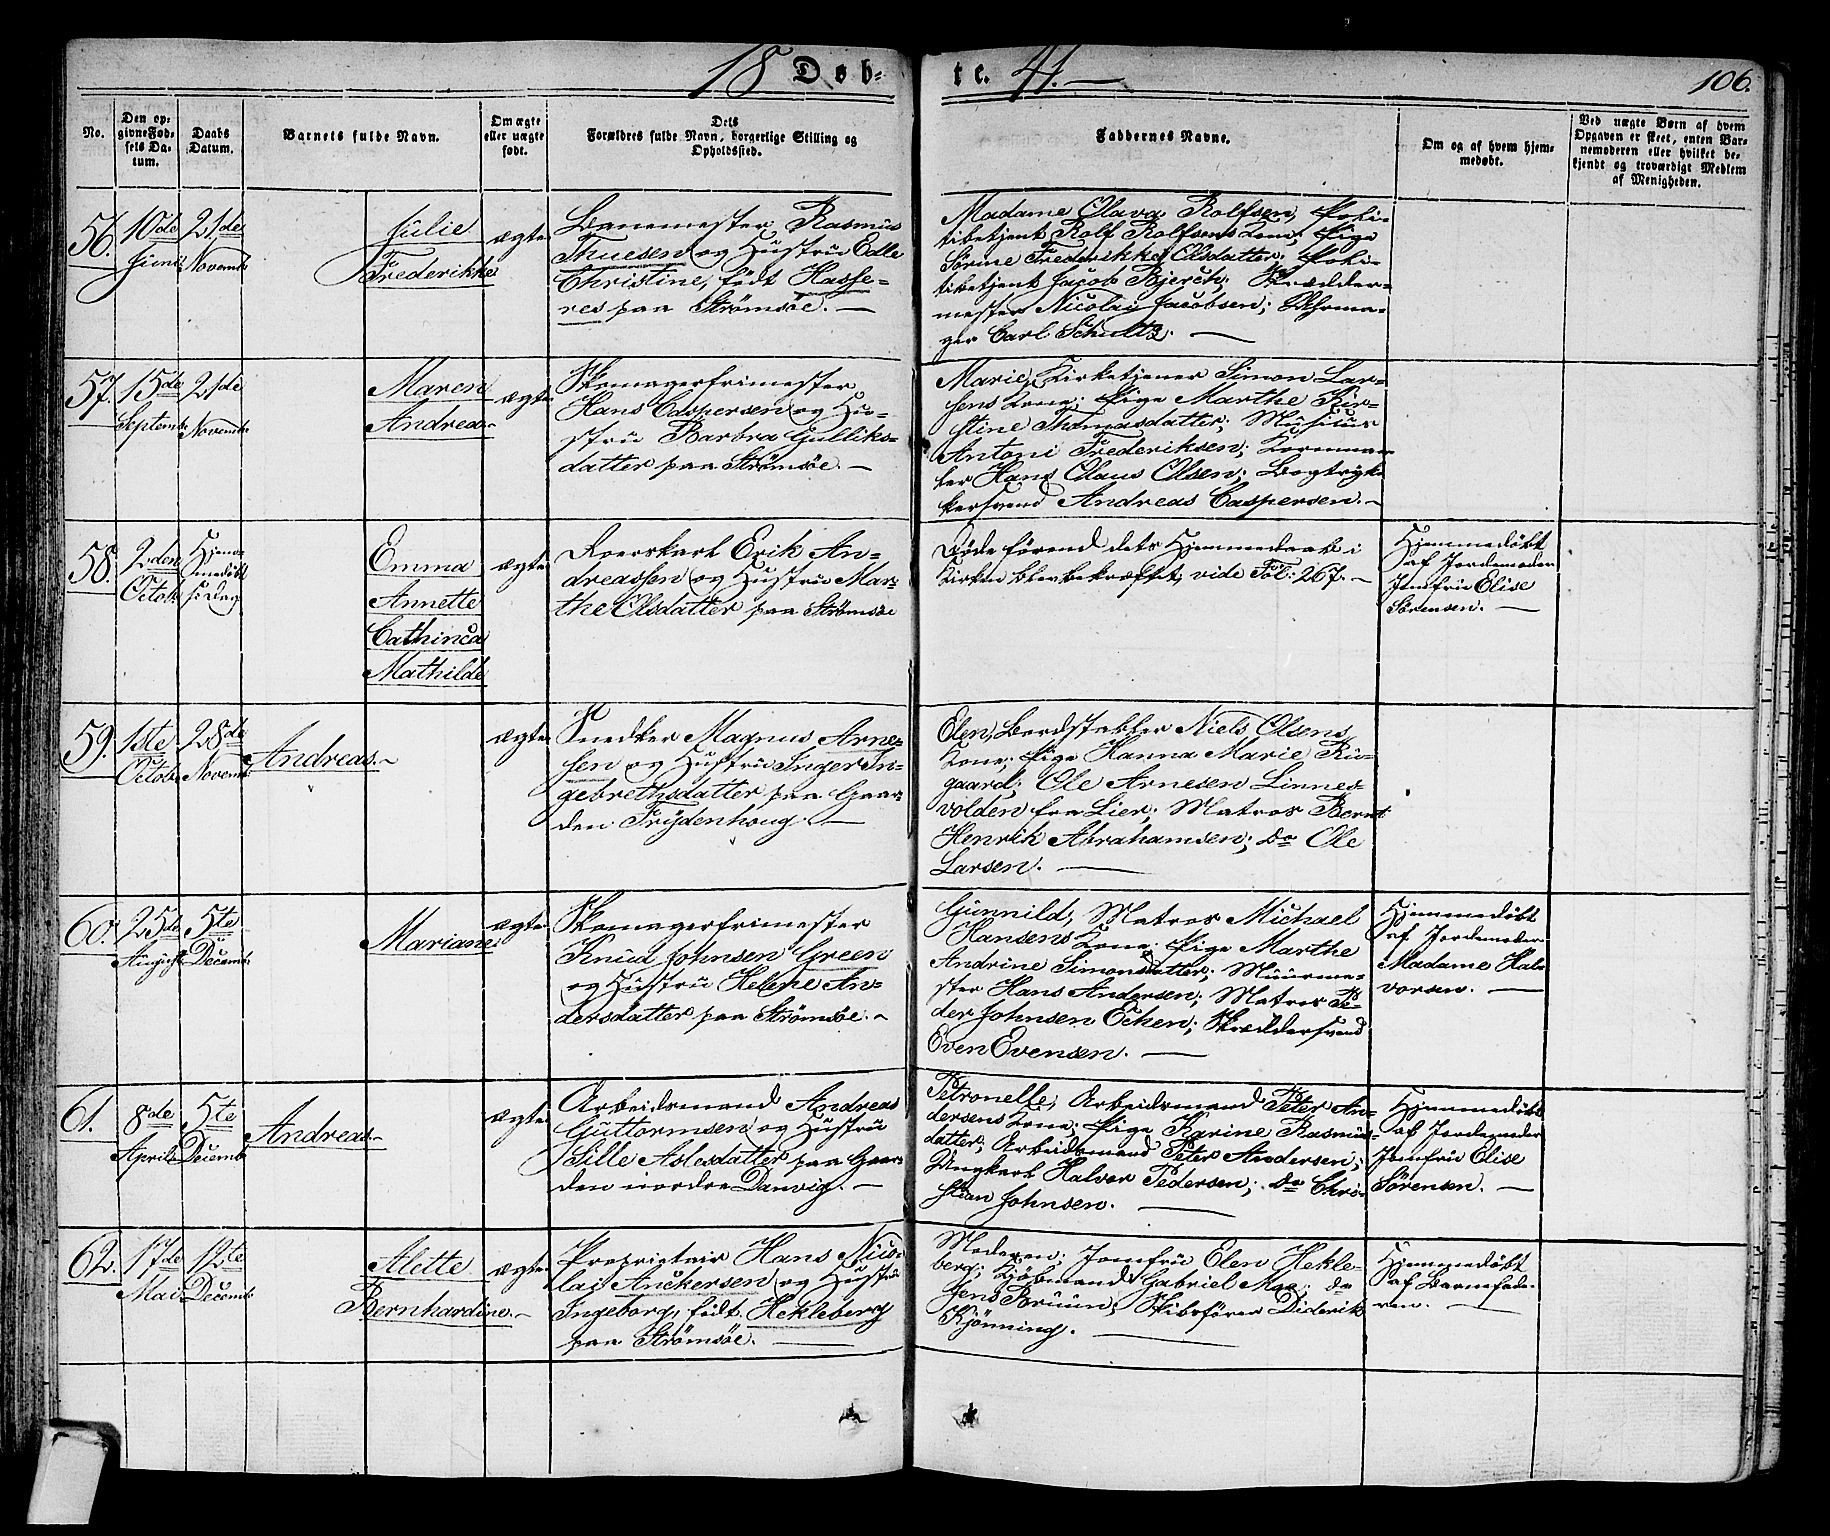 18 Døb-
te. 41. —
106.
No.
Den op-
givne Fød-
sels Da-
tum.
Daabs
Datum.
Barnets fulde Navn.
Om ægte
eller uægte
født.
Dets
Forældres fulde Navn, borgerlige Stilling og
Opholdssted.
Faddernes Navne.
Om og af hvem hjem-
medøbt.
Ved uægte Børn af hvem
Opgaven er skeet, enten Bar-
nemoderen eller hvilket be-
kjendt og troværdigt Medlem
af Menigheden.
56.
10de
Juni
21de
Novemb.
Julie
Frederikke
ægte
Banemester Rasmus
Thuesen og Hustru Edle
Christine, født Hasse-
res paa Strømsøe. —
Madame Olava Rolfsen, Poli-
tibetjent Rolf Rolfsens Kone; Pige
Sørine Frederikke Olsdatter; Poli-
tibetjent Jacob Bjerch; Skrædder-
mester Nicolai Jacobsen; Uhrma-
ger Carl Schultz. —
57.
15de
Septemb.
21de
Novemb.
Maren
Andrea. -
ægte
Skomagerfrimester
Hans Caspersen og Hu-
stru Barbra Gulliks-
datter paa Strømsøe. —
Marie, Kirketjener Simon Lar-
sens Kone; Pige Marthe Kir-
stine Thomasdatter; Musicus
Antoni Frederiksen;
Hans Claus Olsen; Bogtryk-
kersvend Andreas Caspersen. -
58.
2den
Octob.
Hjem-
medøbt
s. Dag
Emma
Annette
Cathinca
Mathilde
ægte
Roerskarl Erik An-
dreassen og Hustru Mar-
the Olsdatter paa Strømsøe
Døde førend dets Hjemmedaab i
Kirken blev bekræftet, vide Fol: 267. -
Hjemmedøbt
af Jordemoder
Jomfru Elise
Sørensen. —
59.
1ste
Octob.
28de
Novemb.
Andreas. -
ægte
Snedker Magnus Arne-
sen og Hustru Inger In-
gebrethsdatter paa Gaar-
den Frydenhoug. —
Elen, Bordstabler Niels Olsens
Kone; Pige Hanna Marie Ru-
gaard; Ole Arnesen Linnes-
volden fra Lier; Matros Bernt
Henrik Abrahamsen; do Ole
Larsen. —
60.
25de
August
5te
Decemb.
Mariane.
ægte
Skomagerfrimester
Knud Johnsen Green
og Hustru Helene An-
dersdatter paa Strømsøe. -
Gunnild, Matros Michael
Hansens Kone; Pige Marthe
Andrine Simonsdatter; Muurme-
ster Hans Andersen; Matros Pe-
der Johnsen Ecken; Skræddersvend
Even Evensen. —
Hjemmedøbt
af Jordemoder
Madame Hal-
vorsen. —
61.
8de
April
5te
Decemb.
Andreas. -
ægte
Arbeidsmand Andreas
Guttormsen og Hustru
Sille Aslesdatter paa Gaar-
den nordre Danvig. —
Petronelle, Arbeidsmand Peter An-
dersens Kone; Pige Karine Rasmus-
datter; Arbeidsmand Peter Andersen;
Ungkarl Halvor Pedersen; do Chri-
stian Johnsen. —
Hjemmedøbt
af Jordemoder
Jomfru Elise
Sørensen. —
62.
17de
Mai
12te
Decemb.
Alette
Bernhardine. -
ægte
Proprietair Hans Nico-
lai Anckersen og Hustru
Ingeborg, født Hekleberg
paa Strømsøe. —
Moderen; Jomfru Elen Hekle-
berg; Kjøbmand Gabriel Moe; do
Jens Bruun; Skibsfører Diderik
Kjønning. —
Hjemmedøbt
af Barnefade-
ren. —